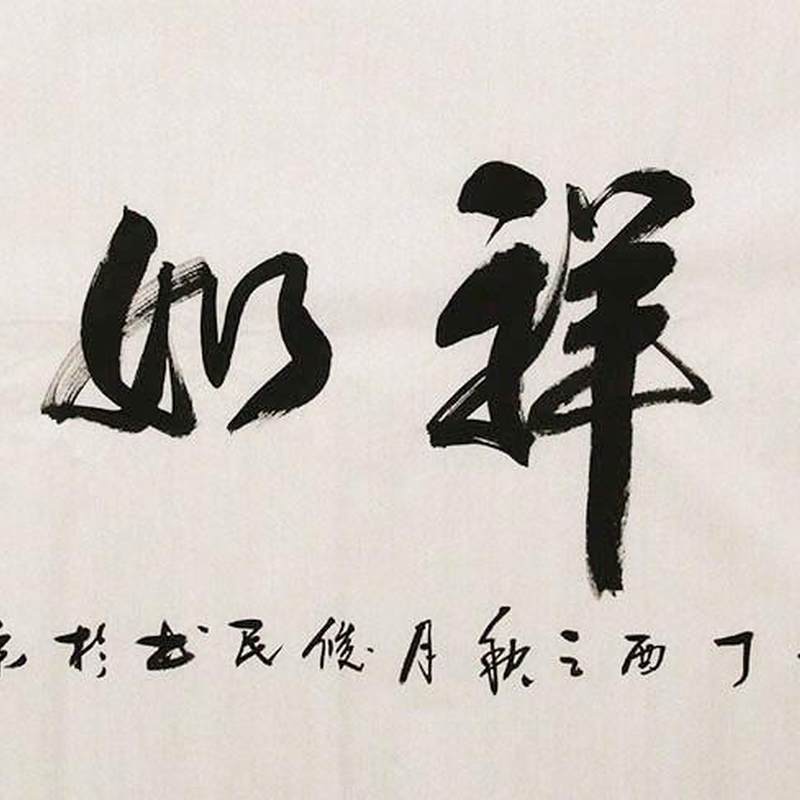 祥如
丁酉之秋月俊民书於京